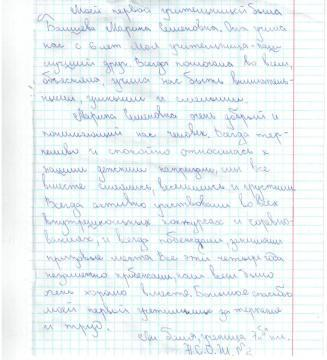 Моей первой учительницей была
Марина Семёновна. Она учила
нас с 6 лет. Моя учительница - нас-
друг. Всегда помогала во всем,
объясняла, учила нас быть вниматель-
ными, умными и смелыми.
Марина Семёновна очень добрый и
понимающий нас человек. Всегда тер-
пеливо и спокойно относилась к
нашим детским капризам, мы все
вместе смеялись, веселились и грустили
Всегда активно участвовали во всех
внутришкольных конкурсах и соревно-
ваниях, и всегда побеждали, занимали
призовые места. Все эти четыре года
незаметно пробежали, нам всем было
очень хорошо вместе. Большое спасибо
моей первой учительнице за терпение
и труд.
ученица 7 кл.
№ 2